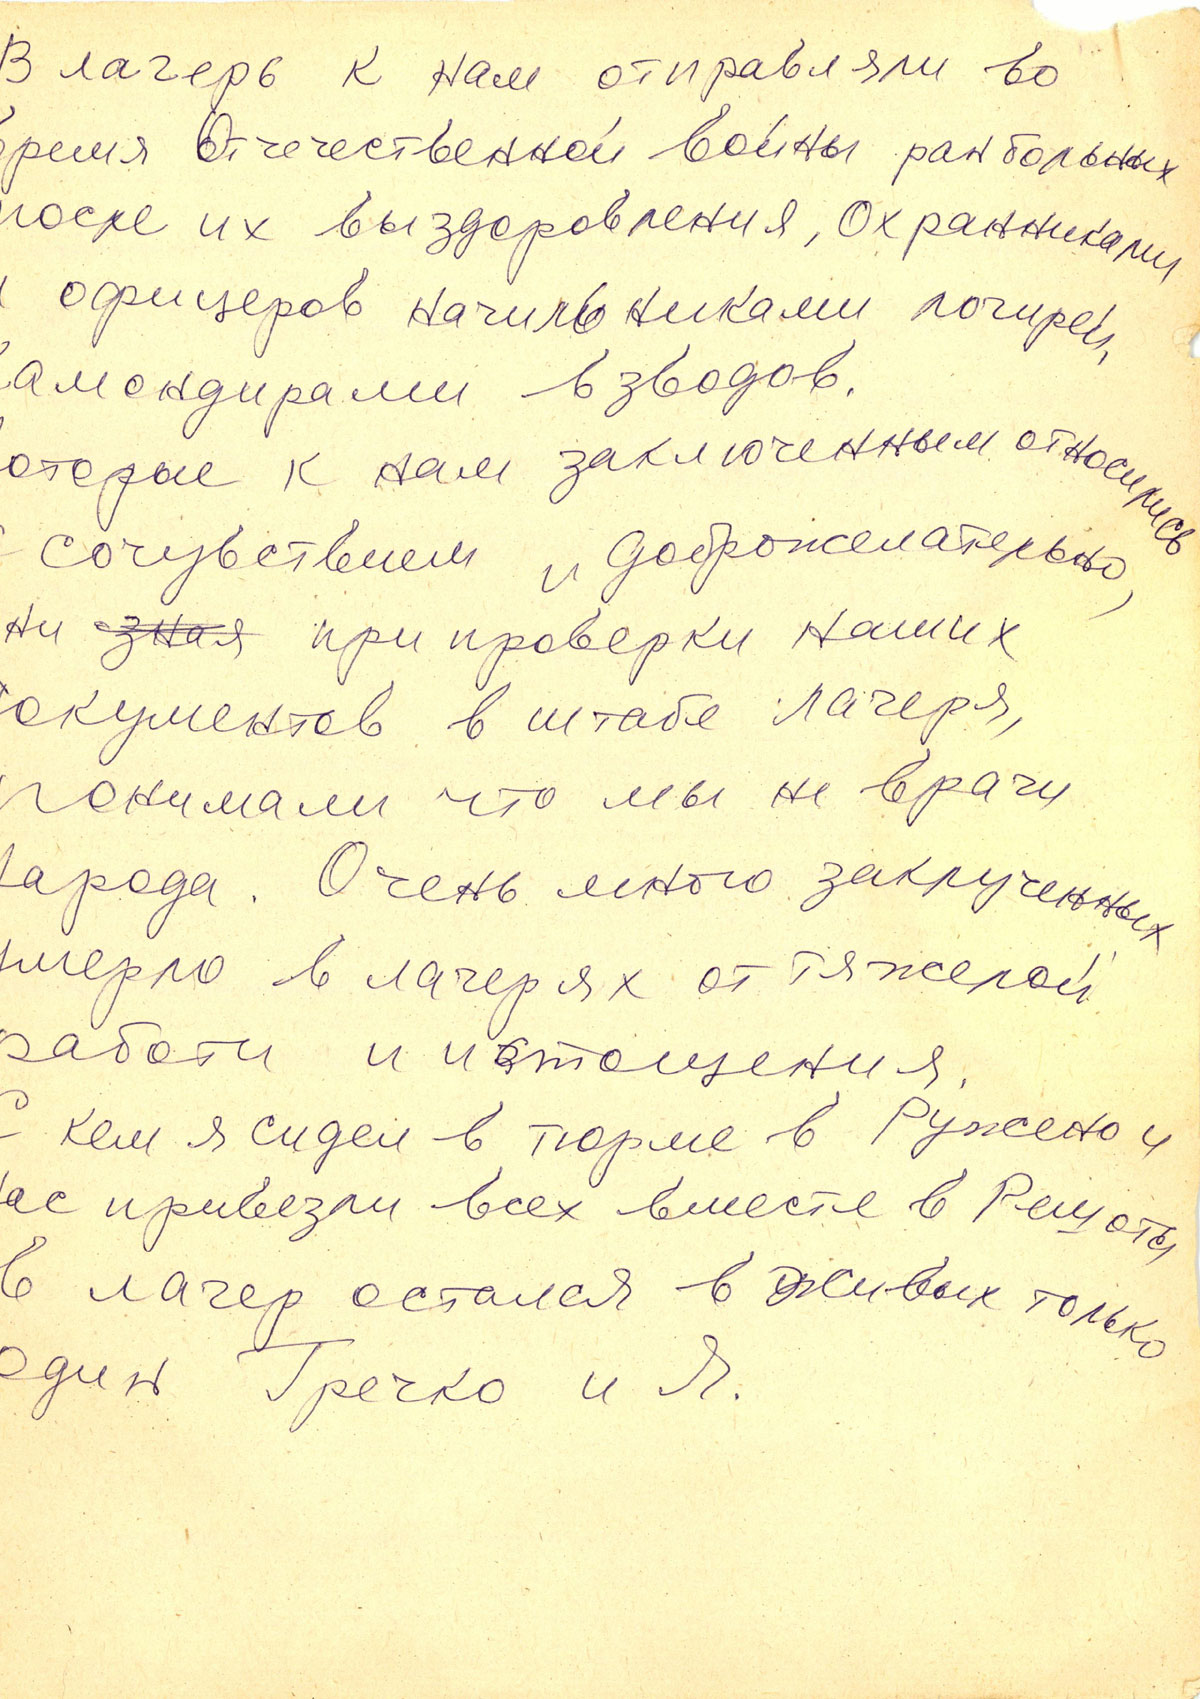 В лагерь к нам отправляли во
время Отечественной войны ранбольных
после их выздоровления, Охранниками
и офицеров начильниками логирей,
камондирами взводов.
которые к нам заключенным относились
с сочувствием и доброжелательно,
ни зная при проверки наших
документов в штабе лагеря,
понимали что мы не врачи
народа. Очень много заключенных
умерло в лагерях от тяжелой
работи и истощения.
С кем я сидел в тюрме в Ружено и
нас привезли всех вместе в Решоты
в лагер остался в живых только
один Гречко и Я.